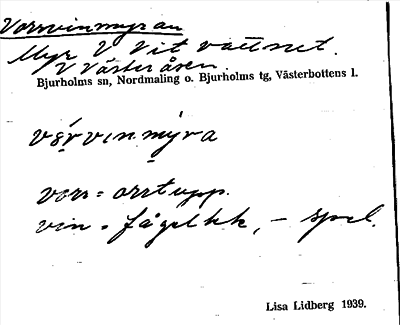 Vorrvinmyran
Myr V Vit vattnet.
V Västeråsen.
Bjurholms sn, Nordmaling o. Bjurholms tg, Västerbottens l.
vérvinmyra
vorr = orrtupp.
vin = fågelkk, – spel.
Lisa Lidberg 1939.